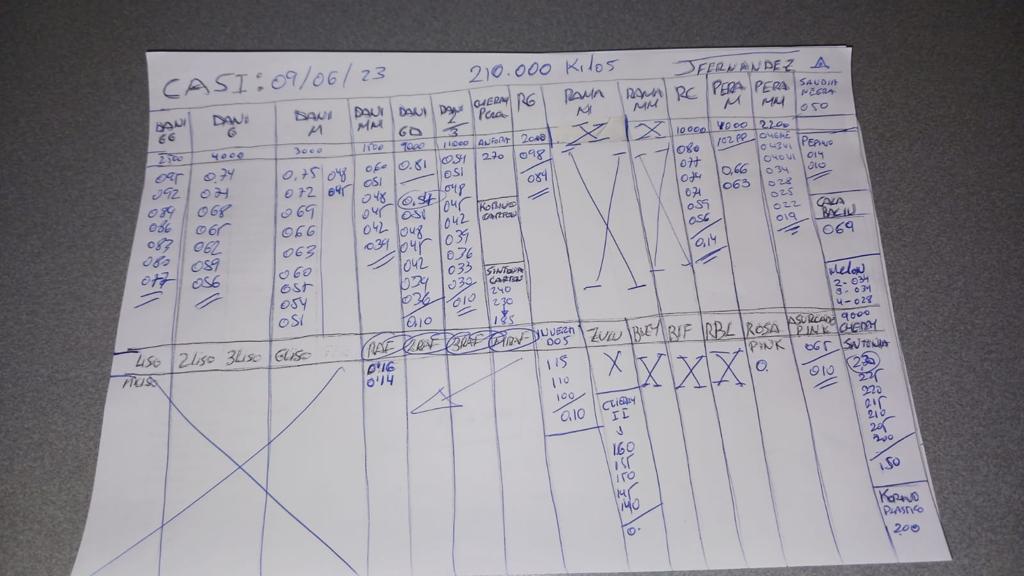 CASI: 09/06/23 210.000 Kilos JFERNANDEZ
DANI GG DANI G DANI M DANI MM DANI GD DANI 2/3 CHERRY RG RAMA M RAMA MM RC PERA M PERA MM SANDIA NEGRA 050
2500 4000 3000 1500 9000 11000 270 2000 X X 10000 4000 2200
095 0,74 0,75 048 060 0,81 054 098 080 0,66
092 071 072 045 051 051 084 077 063
089 068 069 048 051 048 074 034
086 065 066 045 048 045 071 028
083 062 063 042 045 042 059 025
080 059 060 039 042 039 056 022
077 056 057 039 036 0,14 019
054 036 033
051 0,10 030
010
PEPINO
014
010
CALA
BACIN
069
KORINTO
CARTON
SINTONIA
CARTON
240
230
185
MELON
2-034
3-034
4-028
9000
CHERRY
LISO 2LISO 3LISO GLISO RAF 2RAF 3RAF MRAF ZULU RIF RBL ROSA PINK ASURCADO PINK SINTONIA
MLISO
0'16
0'14
115
110
100
0,10
X X X X 0. 065
010
CHERRY
II
160
155
150
145
140
0.
230
225
220
215
210
205
200
150
KORINTO
PLASTICO
200